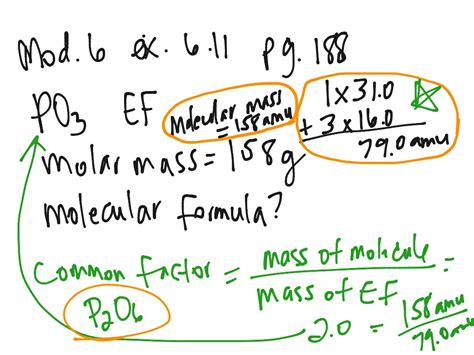 Mod. 6 ex. 6.11 pg. 188
PO3 EF
Molecular mass
= 158 amu
1 x 31.0
+ 3 x 16.0
79.0 amu
molar mass = 158g
molecular formula?
Common factor = mass of molecule / mass of EF =
P2O6
2.0 = 158 amu / 79.0 amu